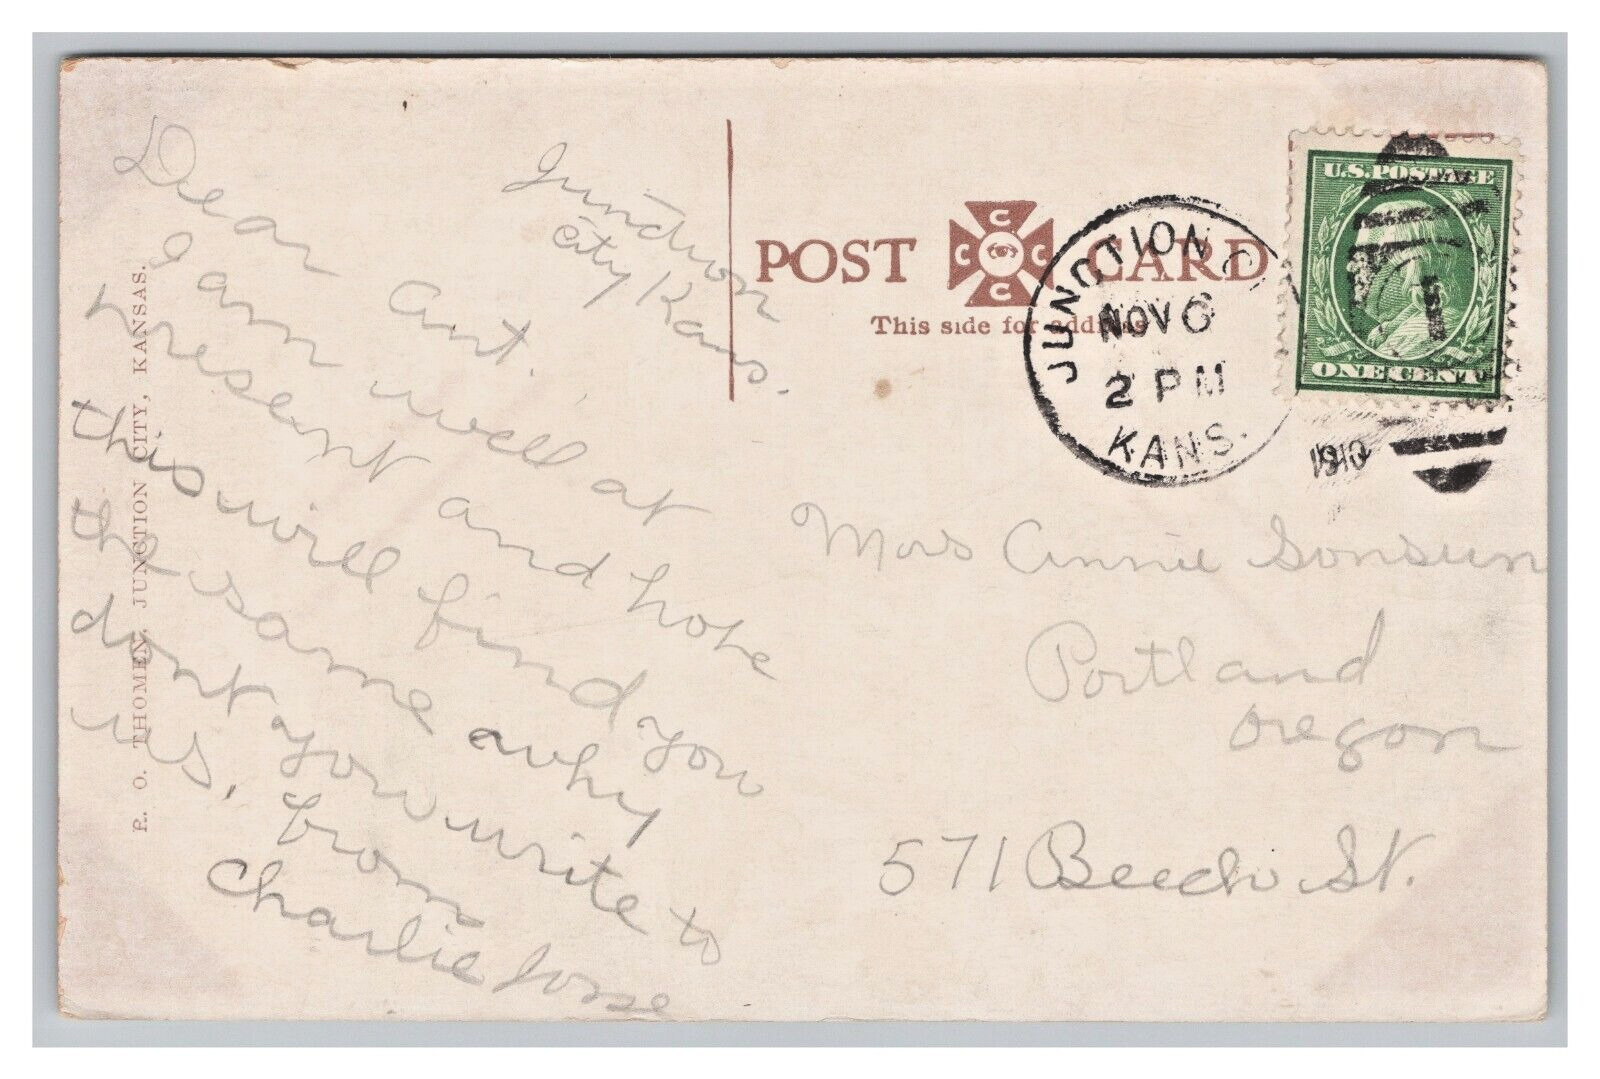 Junction
City Kans.
Dear Ant.
I am well at
present and hope
this will find you
the same why
dont you write to
us. from
Charlie
E. O. THOMEN, JUNCTION CITY, KANSAS.
POST CARD
C C C C
This side for address
JUNCTION C
NOV 6
2 PM
KANS.
1910
U.S. POSTAGE
ONE CENT
Mrs Annie
Portland
Oregon
571 Beech St.